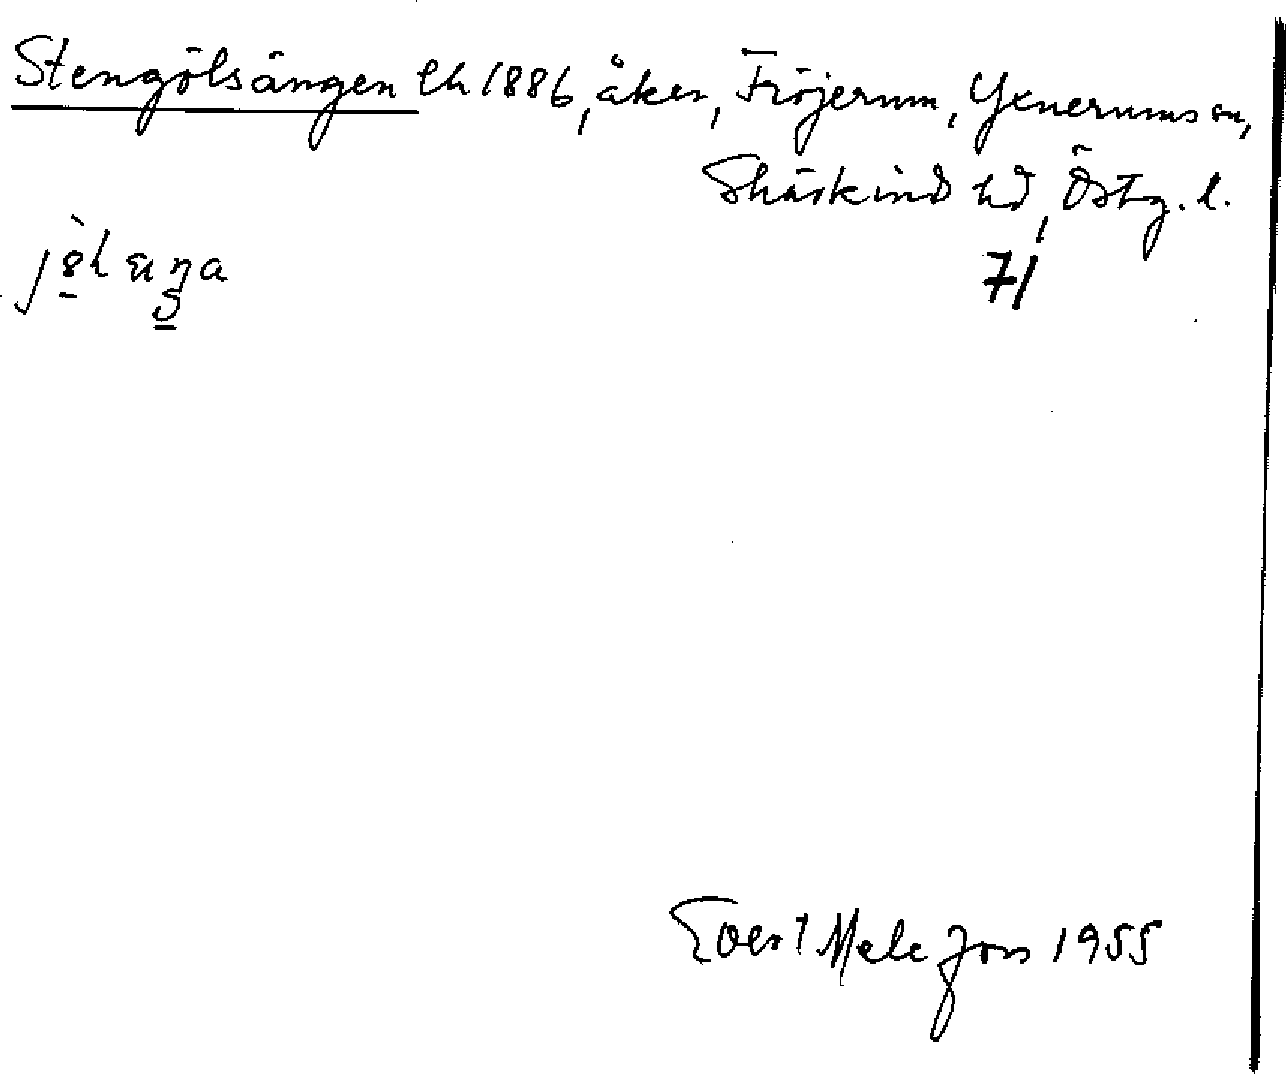 Stengölsängen lh 1886, åker, Fröjerum, Yxnerums sn,
Skärkind hd, Östg. l.
71
Evert Melefors 1955